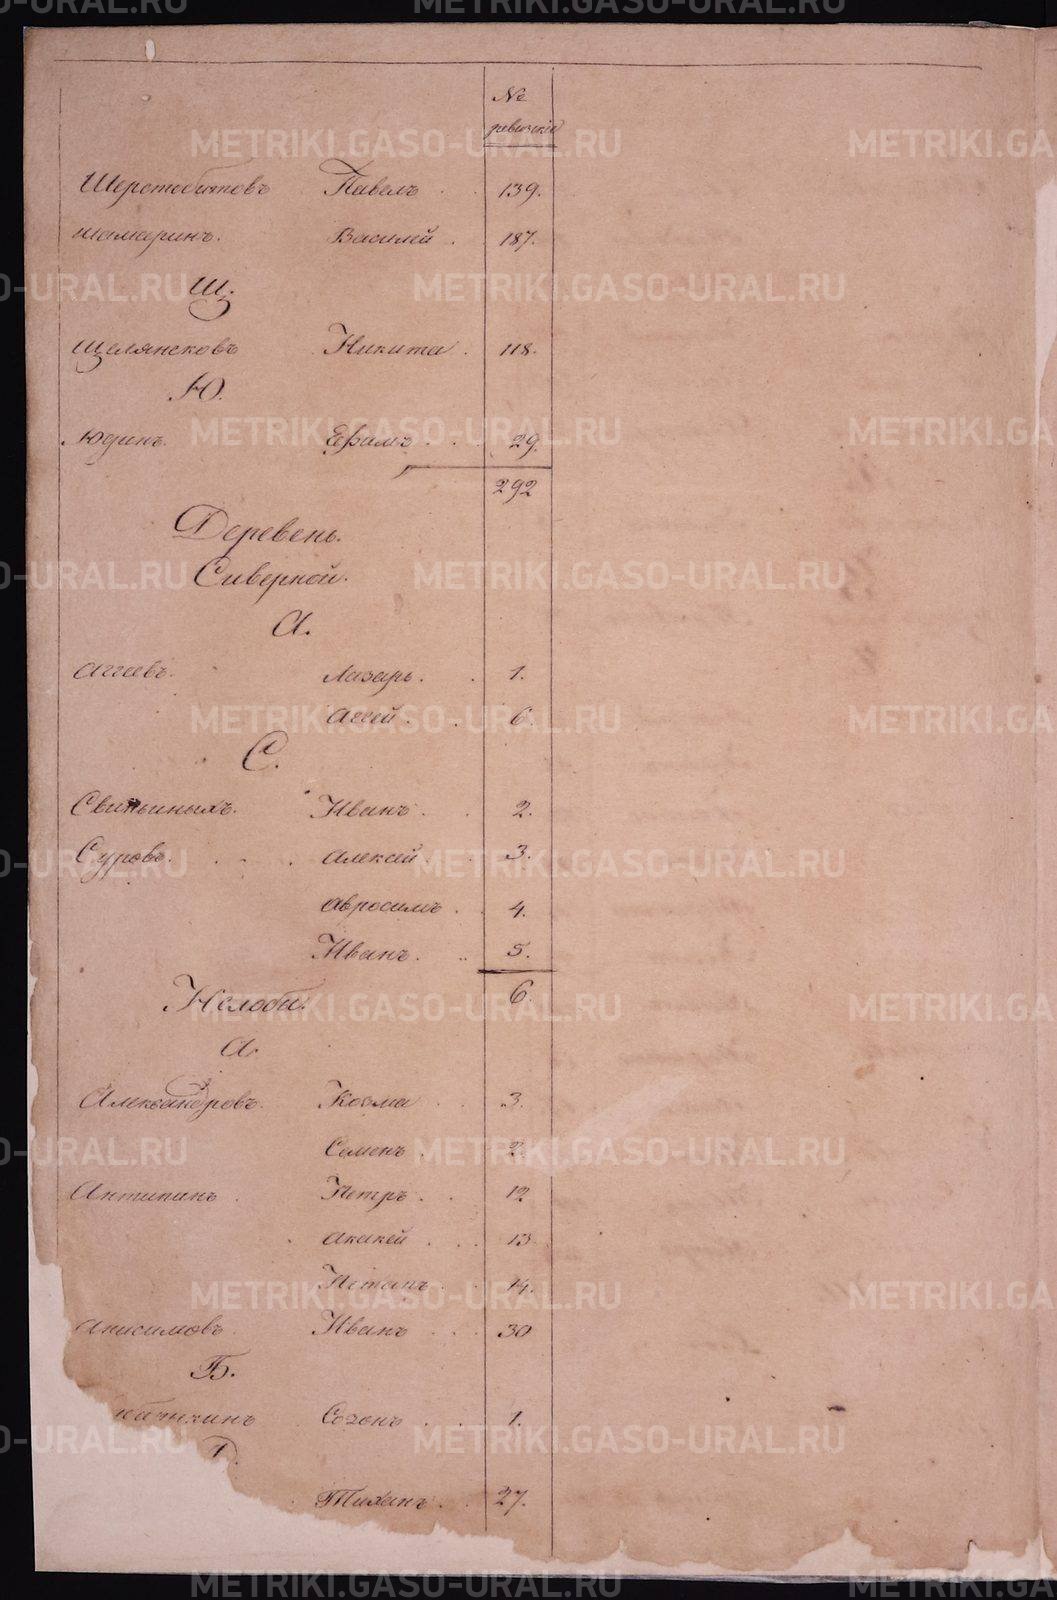 №
ревизскіе
Шерстобитовъ Павелъ . . 139.
Шамаринъ. Василей . 187.
Щ.
Щелянсковъ Никита . 118.
Ю.
Юдинъ. Ефимъ . . . 29.
292
Деревень.
Сиверной.
А.
Аггеевъ. Лазарь . . 1.
Аггей . . 6.
С.
Свиньиныхъ. Иванъ . . 2.
Суровъ. . . . Алексей . . 3.
Авросимъ . . 4.
Иванъ . .. 5.
6.
А.
Александровъ. Козма . . 3.
Семенъ . 2.
Антипинъ . Петръ . . 12
Акакей . . . 13
Потапъ . . 14.
Анисимовъ. Иванъ . . . 30
Б.
Созонъ . . 1.
Тиханъ . . 27.
METRIKI.GASO-URAL.RU